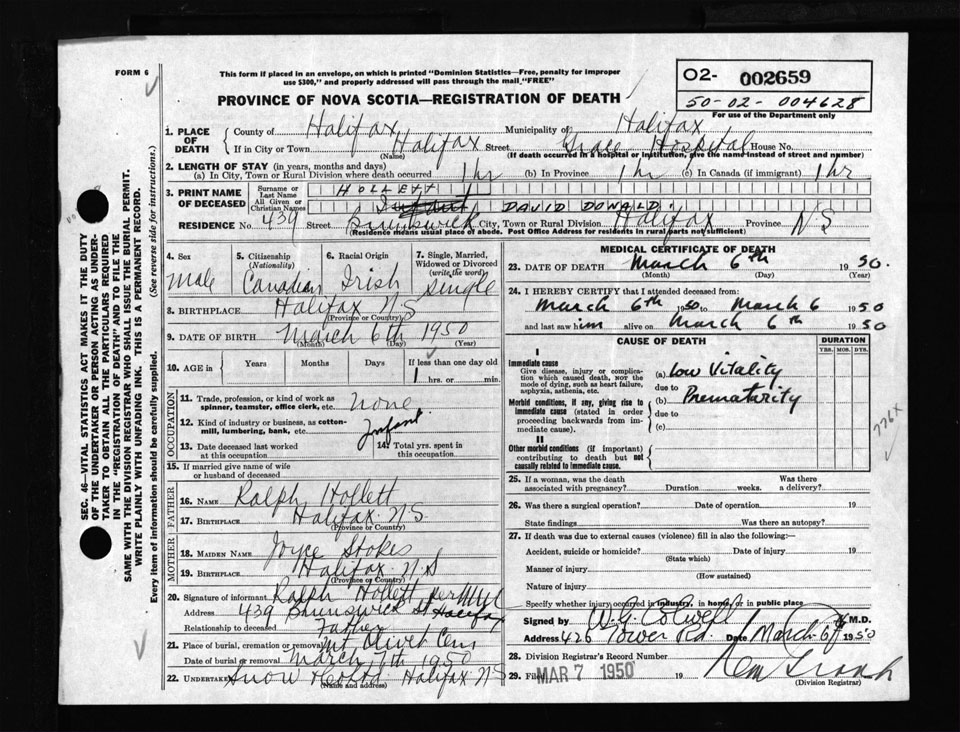 FORM 6
This form if placed in an envelope, on which is printed "Dominion Statistics—Free, penalty for improper
use $300," and properly addressed will pass through the mail "FREE"
O2- 002659
50-02-004628
For use of the Department only
PROVINCE OF NOVA SCOTIA—REGISTRATION OF DEATH
1. PLACE OF DEATH
County of Halifax Municipality of Halifax
If in City or Town Halifax Street Grace Hospital House No.
(Name) (If death occurred in a hospital or institution, give the name instead of street and number)
2. LENGTH OF STAY (in years, months and days)
(a) In City, Town or Rural Division where death occurred 1 hr (b) In Province 1 hr (c) In Canada (if immigrant) 1 hr
3. PRINT NAME OF DECEASED
Surname or Last Name HOLLETT
All Given or Christian Names Infant DAVID DONALD
RESIDENCE No. 439 Street Brunswick City, Town or Rural Division Halifax Province N.S
(Residence means usual place of abode. Post Office Address for residents in rural parts not sufficient)
4. Sex
5. Citizenship (Nationality)
6. Racial Origin
7. Single, Married, Widowed or Divorced (write the word)
Male Canadian Irish Single
8. BIRTHPLACE Halifax N.S
(Province or Country)
9. DATE OF BIRTH March 6th 1950
(Month) (Day) (Year)
10. AGE in
Years Months Days If less than one day old
1 hrs. or min.
OCCUPATION
11. Trade, profession, or kind of work as
spinner, teamster, office clerk, etc. none
12. Kind of industry or business, as cotton-
mill, lumbering, bank, etc. Infant
13. Date deceased last worked
at this occupation
14. Total yrs. spent in
this occupation
15. If married give name of wife
or husband of deceased
FATHER
16. NAME Ralph Hollett
17. BIRTHPLACE Halifax N.S
(Province or Country)
MOTHER
18. MAIDEN NAME Joyce Stokes
19. BIRTHPLACE Halifax N.S
(Province or Country)
20. Signature of informant Ralph Hollett per
Address 439 Brunswick St Halifax
Relationship to deceased Father
21. Place of burial, cremation or removal Mt Olivet Cem
Date of burial or removal March 7th 1950
22. UNDERTAKER Snow Halifax N.S
(Name and address)
MEDICAL CERTIFICATE OF DEATH
23. DATE OF DEATH March 6th 1950.
(Month) (Day) (Year)
24. I HEREBY CERTIFY that I attended deceased from:
March 6th 1950 to March 6 1950
and last saw him alive on March 6th 1950
CAUSE OF DEATH
DURATION
YRS. MOS. DYS.
I
Immediate cause
Give disease, injury or complica-
tion which caused death, not the
mode of dying, such as heart failure,
asphyxia, asthenia, etc.
(a) Low Vitality
due to
Morbid conditions, if any, giving rise to
immediate cause (stated in order
proceeding backwards from im-
mediate cause).
(b) Prematurity
due to
(c)
II
Other morbid conditions (if important)
contributing to death but not
causally related to immediate cause.
776X
25. If a woman, was the death
associated with pregnancy? Duration weeks. Was there
a delivery?
26. Was there a surgical operation? Date of operation 19
State findings Was there an autopsy?
27. If death was due to external causes (violence) fill in also the following:—
Accident, suicide or homicide? Date of injury 19
(State which)
Manner of injury
(How sustained)
Nature of injury
Specify whether injury occurred in industry, in home, or in public place
Signed by W.G. Colwell M.D.
Address 426 Tower Rd. Date March 6th 1950
28. Division Registrar's Record Number
29. Filed MAR 7 1950 19
(Division Registrar)
SEC. 46—VITAL STATISTICS ACT MAKES IT THE DUTY
OF THE UNDERTAKER OR PERSON ACTING AS UNDER-
TAKER TO OBTAIN ALL THE PARTICULARS REQUIRED
IN THE "REGISTRATION OF DEATH" AND TO FILE THE
SAME WITH THE DIVISION REGISTRAR WHO SHALL ISSUE THE BURIAL PERMIT.
WRITE PLAINLY WITH UNFADING INK. THIS IS A PERMANENT RECORD.
Every item of information should be carefully supplied. (See reverse side for instructions.)